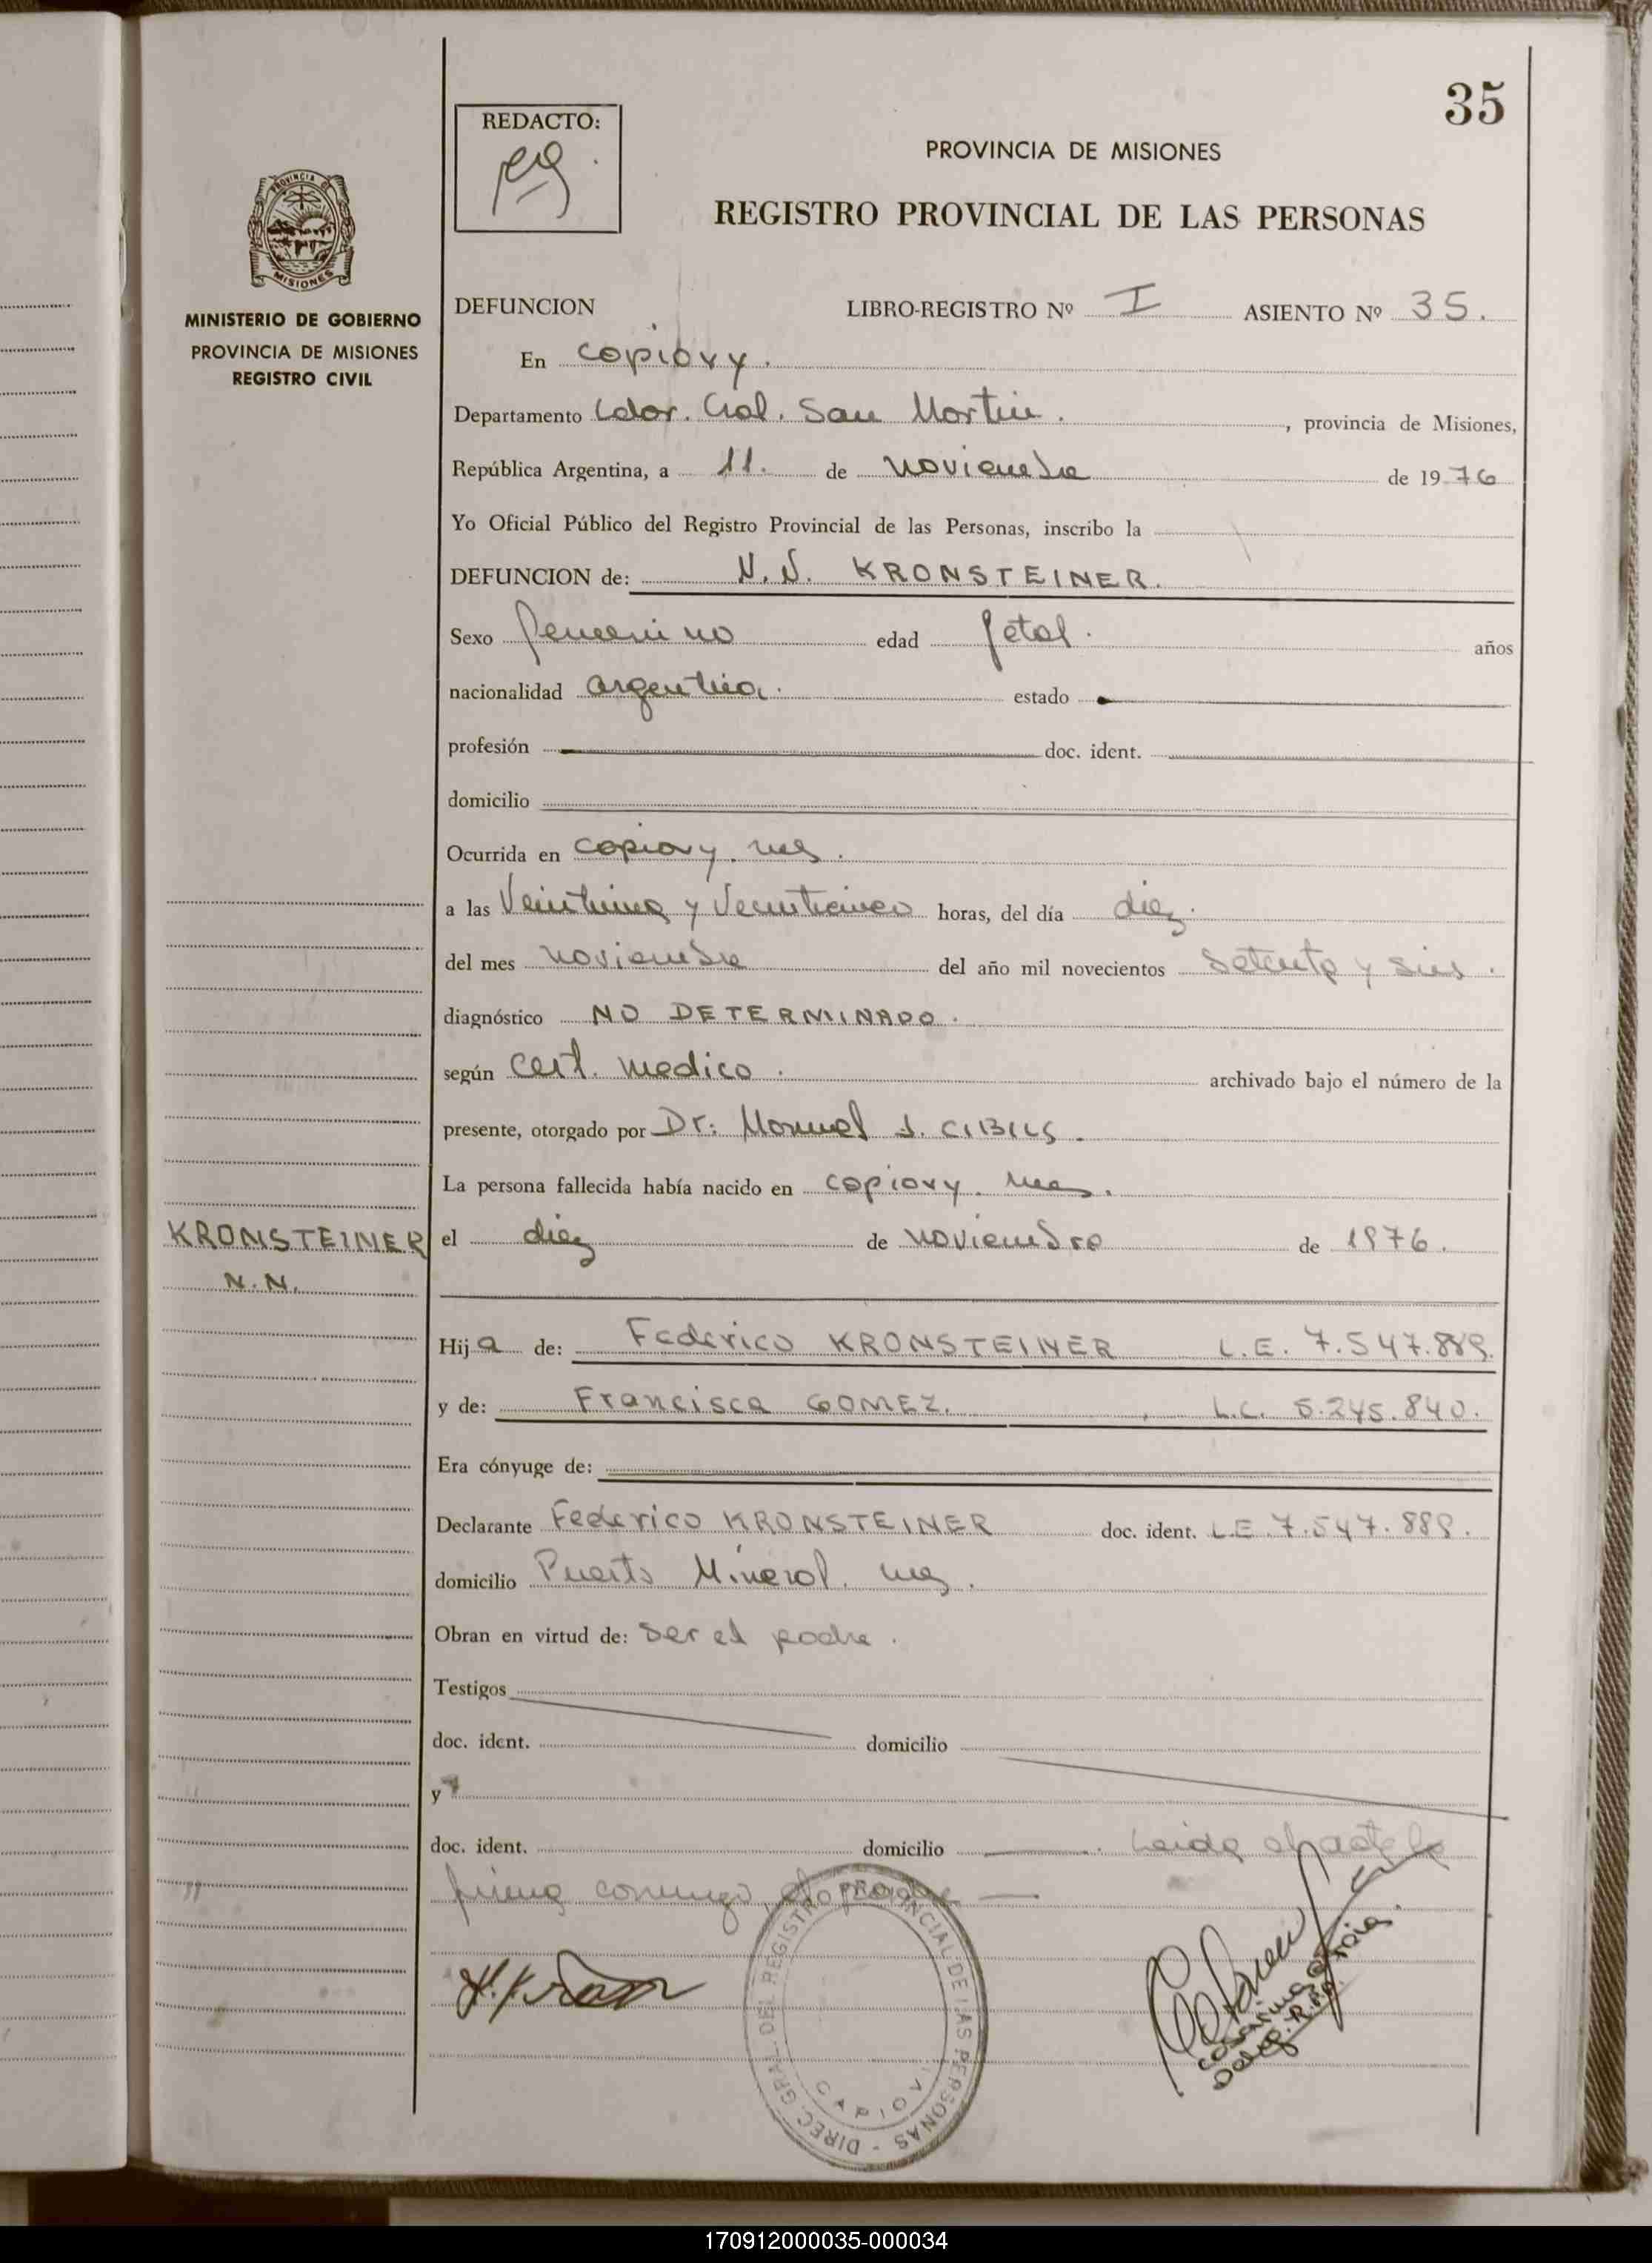 35
REDACTO:
PROVINCIA DE MISIONES
REGISTRO PROVINCIAL DE LAS PERSONAS
PROVINCIA DE
MISIONES
MINISTERIO DE GOBIERNO
PROVINCIA DE MISIONES
REGISTRO CIVIL
DEFUNCION LIBRO-REGISTRO Nº I ASIENTO Nº 35.
En Capiovy.
Departamento Ldor. Gral. San Martin. , provincia de Misiones,
República Argentina, a 11. de noviembre de 1976
Yo Oficial Público del Registro Provincial de las Personas, inscribo la
DEFUNCION de: N.N. KRONSTEINER.
Sexo femenino edad fetal. años
nacionalidad argentina. estado
profesión doc. ident.
domicilio
Ocurrida en capiovy. mes.
a las Veintiuna y Veinticinco horas, del día diez.
del mes noviembre del año mil novecientos setenta y seis.
diagnóstico NO DETERMINADO.
según Cert. medico. archivado bajo el número de la
presente, otorgado por Dr: Manuel J. CIBILS.
La persona fallecida había nacido en capiovy. mes.
el diez de noviembre de 1976.
KRONSTEINER
N.N.
Hija de: Federico KRONSTEINER L.E. 7.547.889.
y de: Francisca GOMEZ. L.C. 5.245.840.
Era cónyuge de:
Declarante Federico KRONSTEINER doc. ident. L.E. 7.547.889.
domicilio Puerto Mineral. mes.
Obran en virtud de: ser el padre.
Testigos
doc. ident. domicilio
y
doc. ident. domicilio . Leida el acta la
firma conmigo
DIREC. GRAL. DEL REGISTRO PROVINCIAL DE LAS PERSONAS -
CAPIOVI
Deleg. R.P.P.
170912000035-000034